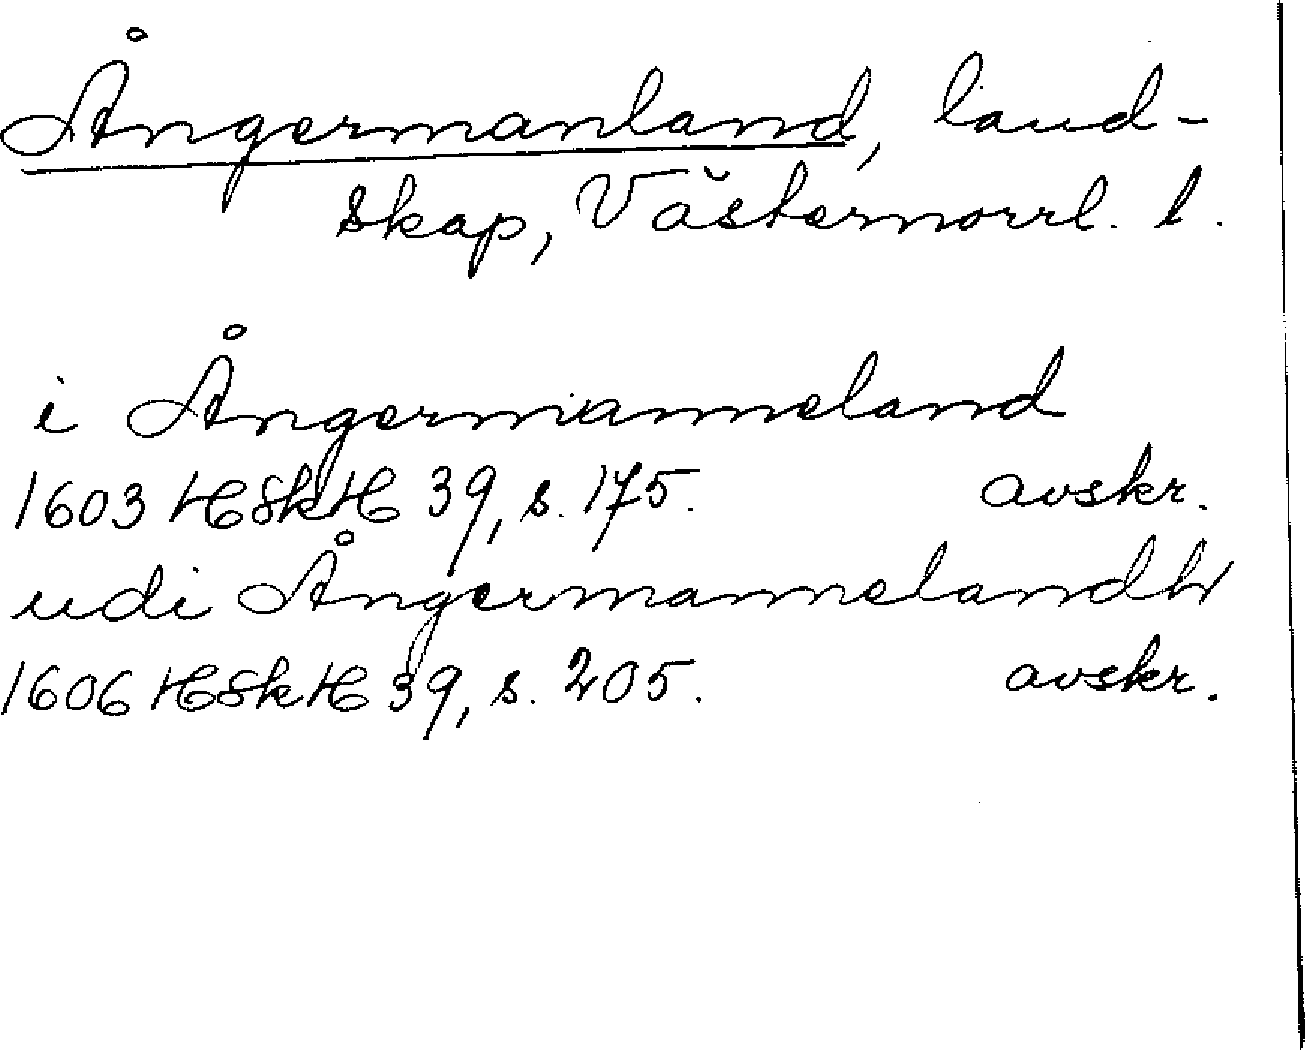 Ångermanland, land-
skap, Västernorrl. l.
i Ångermanneland
1603 HSkH 39, s. 175. avskr.
udi Ångermannelandh
1606 HSkH 39, s. 205. avskr.